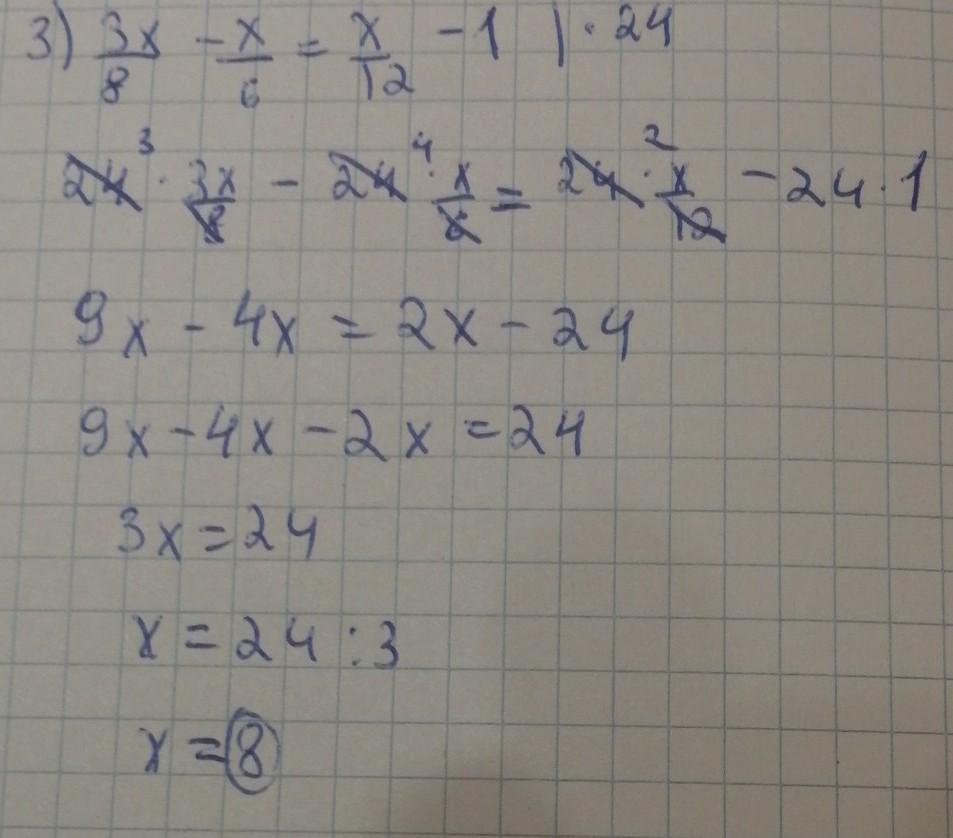 3) 3x/8 - x/6 = x/12 - 1 | · 24
24³ · 3x/8 - 24⁴ · x/6 = 24² · x/12 - 24 · 1
9x - 4x = 2x - 24
9x - 4x - 2x = 24
3x = 24
x = 24 : 3
x = 8